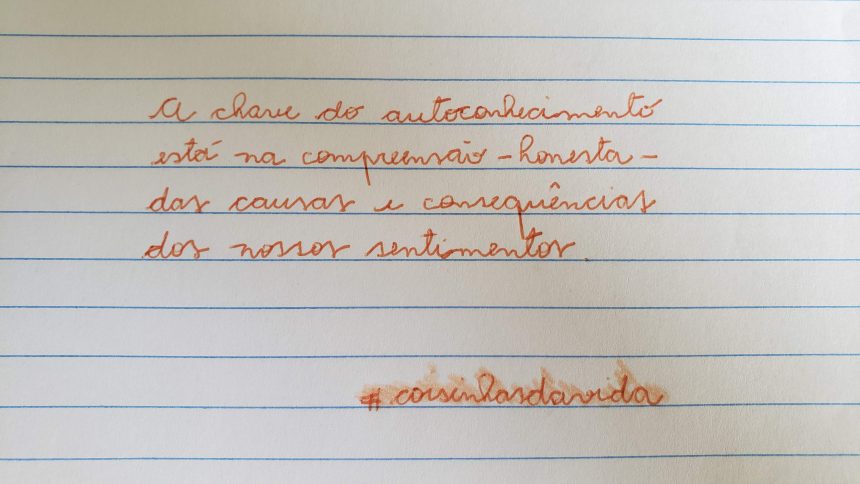 A chave do autoconhecimento
está na compreensão - honesta -
das causas e consequências
dos nossos sentimentos.
#coisinhasdavida